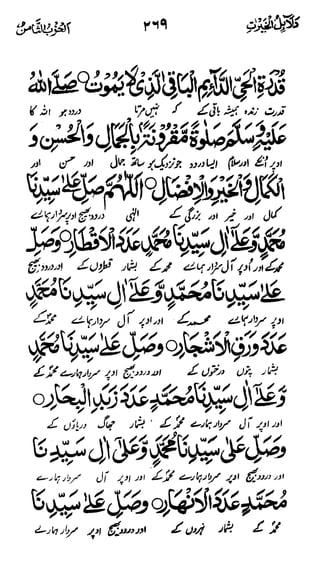 دلائل الخیرت ۲۶۹ الحزب الثامن
قُدْرَةِ الْحَيِّ الدَّآئِمِ الْبَاقِي الَّذِيْ لَا يَمُوْتُ ○ صَلَّى اللهُ
قدرت زندہ ہمیشہ باقی کے کہ نہیں مرتا درود ہو اللہ کا
عَلَيْهِ وَسَلَّمَ صَلٰوةً مَّقْرُوْنَةً بِالْجَمَالِ وَالْحُسْنِ وَ
اوپر انکے اور سلام ایسا درود جو نزدیک ہو ساتھ جمال اور حسن اور
الْكَمَالِ وَالْخَيْرِ وَالْاِفْضَالِ ○ اَللّٰهُمَّ صَلِّ عَلٰى سَيِّدِنَا
کمال اور خیر اور بزرگی کے الٰہی درود بھیج اوپر سردار ہمارے
مُحَمَّدٍ وَّعَلٰى اٰلِ سَيِّدِنَا مُحَمَّدٍ عَدَدَ الْاَقْطَارِ ○ وَصَلِّ
محمدؐ کے اور اوپر آل سردار ہمارے محمدؐ کے بشمار قطروں کے اور درود بھیج
عَلٰى سَيِّدِنَا مُحَمَّدٍ وَّعَلٰى اٰلِ سَيِّدِنَا مُحَمَّدٍ
اوپر سردار ہمارے محمدؐ کے اور اوپر آل سردار ہمارے محمدؐ کے
عَدَدَ وَرَقِ الْاَشْجَارِ ○ وَصَلِّ عَلٰى سَيِّدِنَا مُحَمَّدٍ
بشمار پتوں درختوں کے اور درود بھیج اوپر سردار ہمارے محمدؐ کے
وَّعَلٰى اٰلِ سَيِّدِنَا مُحَمَّدٍ عَدَدَ زَبَدِ الْبِحَارِ ○
اور اوپر آل سردار ہمارے محمدؐ کے بشمار جھاگ دریاؤں کے
وَصَلِّ عَلٰى سَيِّدِنَا مُحَمَّدٍ وَّعَلٰى اٰلِ سَيِّدِنَا
اور درود بھیج اوپر سردار ہمارے محمدؐ کے اور اوپر آل سردار ہمارے
مُحَمَّدٍ عَدَدَ الْاَنْهَارِ ○ وَصَلِّ عَلٰى سَيِّدِنَا
محمدؐ کے بشمار نہروں کے اور درود بھیج اوپر سردار ہمارے